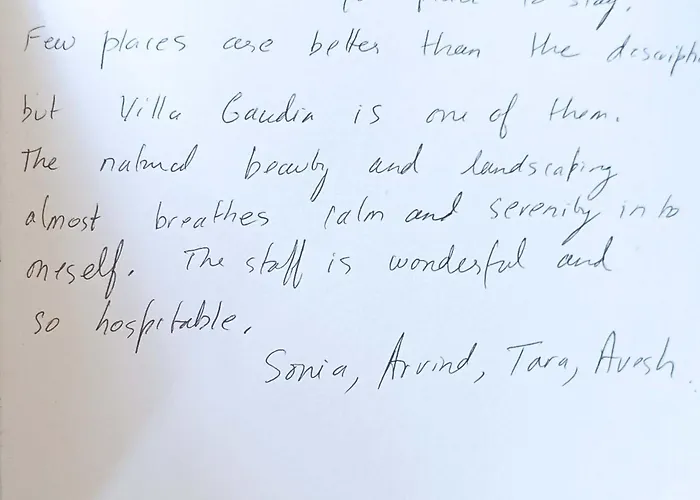 to stay.
Few places are better than the descripti
but Villa Gaudia is one of them.
The natural beauty and landscaping
almost breathes calm and serenity into
oneself. The staff is wonderful and
so hospitable.
Sonia, Arvind, Tara, Avesh